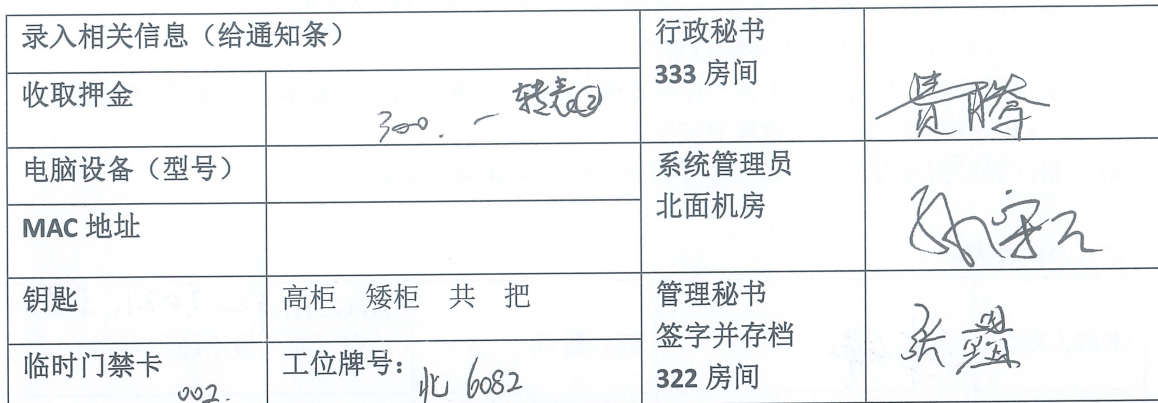 录入相关信息（给通知条）
行政秘书
333 房间
收取押金
300. —
电脑设备（型号）
系统管理员
北面机房
MAC 地址
钥匙
高柜 矮柜 共 把
管理秘书
签字并存档
322 房间
临时门禁卡
002.
工位牌号：北 6082